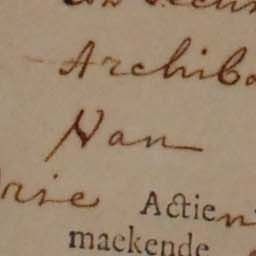 Archibo
Van
Drie Actien
maekende